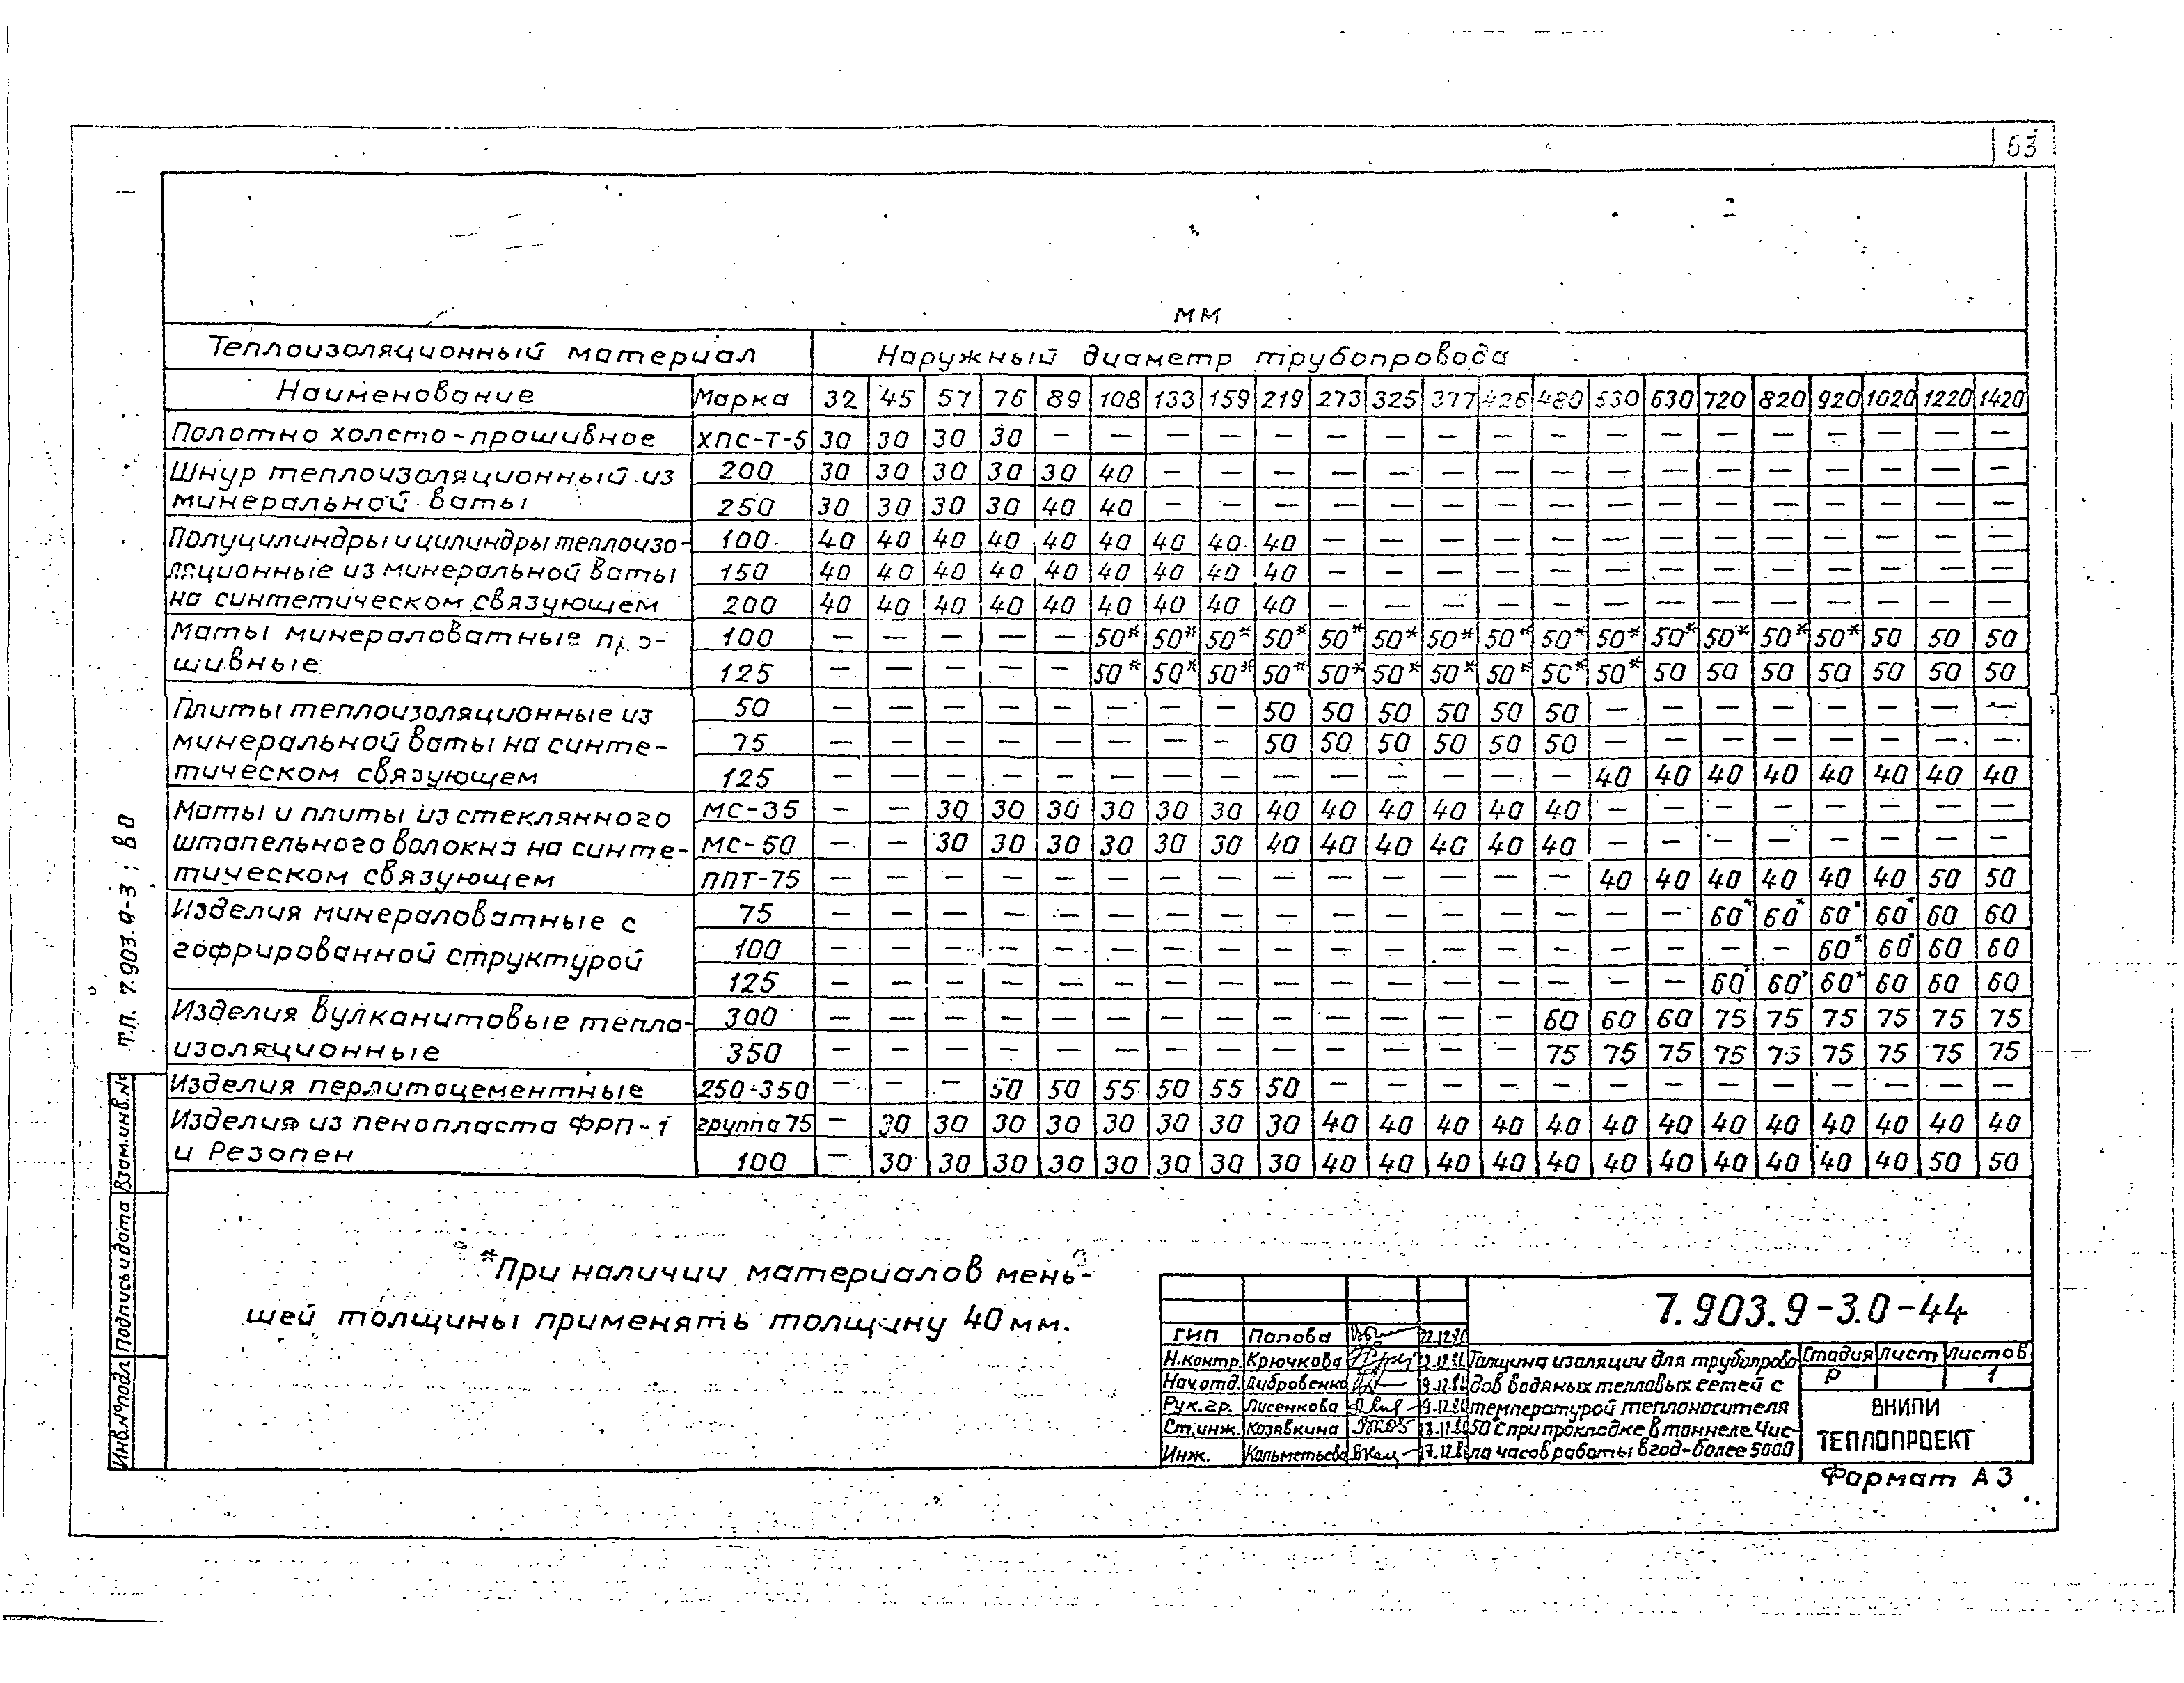 63
мм
Теплоизоляционный материал Наружный диаметр трубопровода
Наименование Марка 32 45 57 76 89 108 133 159 219 273 325 377 426 480 530 630 720 820 920 1020 1220 1420
Полотно холсто-прошивное ХПС-Т-5 30 30 30 30 — — — — — — — — — — — — — — — — — —
Шнур теплоизоляционный из 200 30 30 30 30 30 40 — — — — — — — — — — — — — — — —
минеральной ваты 250 30 30 30 30 40 40 — — — — — — — — — — — — — — — —
Полуцилиндры и цилиндры теплоизо- 100 40 40 40 40 40 40 40 40 40 — — — — — — — — — — — — —
ляционные из минеральной ваты 150 40 40 40 40 40 40 40 40 40 — — — — — — — — — — — — —
на синтетическом связующем 200 40 40 40 40 40 40 40 40 40 — — — — — — — — — — — — —
Маты минераловатные про- 100 — — — — — 50* 50* 50* 50* 50* 50* 50* 50* 50* 50* 50* 50* 50* 50* 50 50 50
шивные 125 — — — — — 50* 50* 50* 50* 50* 50* 50* 50* 50* 50* 50 50 50 50 50 50 50
Плиты теплоизоляционные из 50 — — — — — — — — 50 50 50 50 50 50 — — — — — — — —
минеральной ваты на синте- 75 — — — — — — — — 50 50 50 50 50 50 — — — — — — — —
тическом связующем 125 — — — — — — — — — — — — — — 40 40 40 40 40 40 40 40
Маты и плиты из стеклянного МС-35 — — 30 30 30 30 30 30 40 40 40 40 40 40 — — — — — — — —
штапельного волокна на синте- МС-50 — — 30 30 30 30 30 30 40 40 40 40 40 40 — — — — — — — —
тическом связующем ППТ-75 — — — — — — — — — — — — — — 40 40 40 40 40 40 50 50
Изделия минераловатные с 75 — — — — — — — — — — — — — — — — 60* 60* 60* 60* 60 60
гофрированной структурой 100 — — — — — — — — — — — — — — — — — — 60* 60* 60 60
125 — — — — — — — — — — — — — — — — 60* 60* 60* 60 60 60
Изделия вулканитовые тепло- 300 — — — — — — — — — — — — — 60 60 60 75 75 75 75 75 75
изоляционные 350 — — — — — — — — — — — — — 75 75 75 75 75 75 75 75 75
Изделия перлитоцементные 250-350 — — — 50 50 55 50 55 50 — — — — — — — — — — — — —
Изделия из пенопласта ФРП-1 группа 75 — 30 30 30 30 30 30 30 30 40 40 40 40 40 40 40 40 40 40 40 40 40
и Резопен 100 — 30 30 30 30 30 30 30 30 40 40 40 40 40 40 40 40 40 40 40 50 50
*При наличии материалов мень-
шей толщины применять толщину 40 мм.
т.п. 7.903.9-3; в 0
Взам.инв.№
Подпись и дата
Инв.№подл
7.903.9-3.0-44
ГИП Попова
Н.контр. Крючкова
Нач.отд. Дибровенко
Рук.гр. Лисенкова
Ст.инж. Козявкина
Инж. Кальметьева
Толщина изоляции для трубопрово
дов водяных тепловых сетей с
температурой теплоносителя
50°С при прокладке в тоннеле. Чис-
ло часов работы в год-более 5000
Стадия Лист Листов
Р 1
ВНИПИ
ТЕПЛОПРОЕКТ
Формат А3